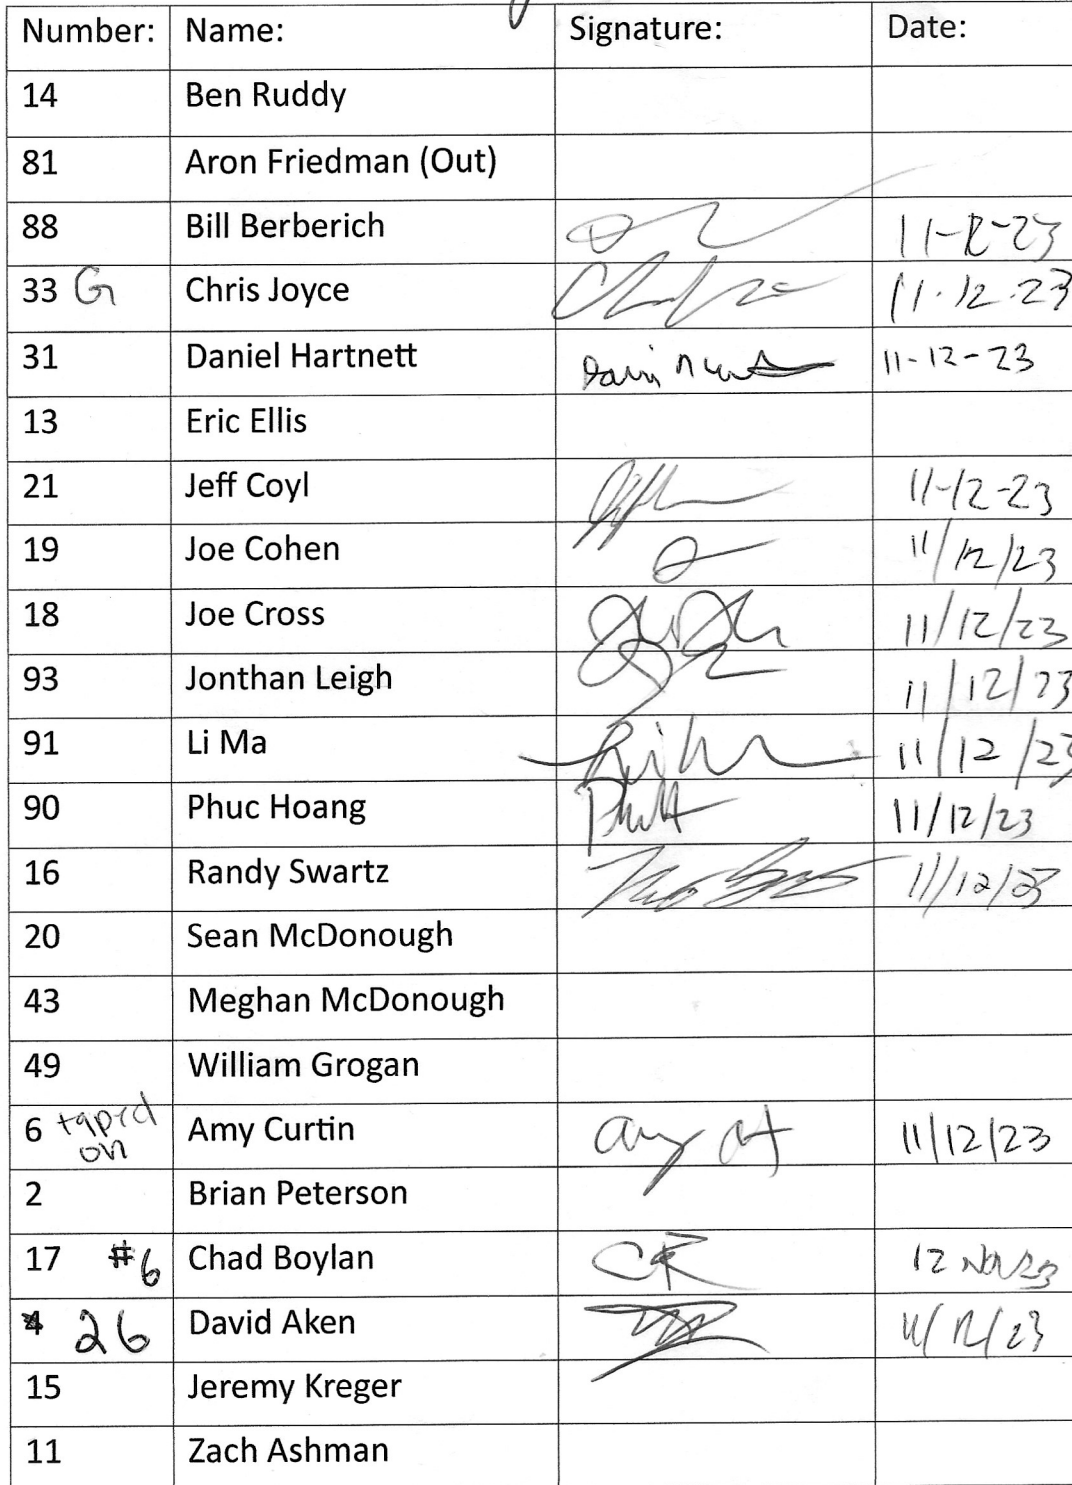 Number: Name: Signature: Date:
14 Ben Ruddy
81 Aron Friedman (Out)
88 Bill Berberich 11-12-23
33 G Chris Joyce 11.12.23
31 Daniel Hartnett 11-12-23
13 Eric Ellis
21 Jeff Coyl 11-12-23
19 Joe Cohen 11/12/23
18 Joe Cross 11/12/23
93 Jonthan Leigh 11/12/23
91 Li Ma 11/12/23
90 Phuc Hoang 11/12/23
16 Randy Swartz 11/12/23
20 Sean McDonough
43 Meghan McDonough
49 William Grogan
6 taped on Amy Curtin 11/12/23
2 Brian Peterson
17 #6 Chad Boylan 12 Nov 23
4 26 David Aken 11/12/23
15 Jeremy Kreger
11 Zach Ashman